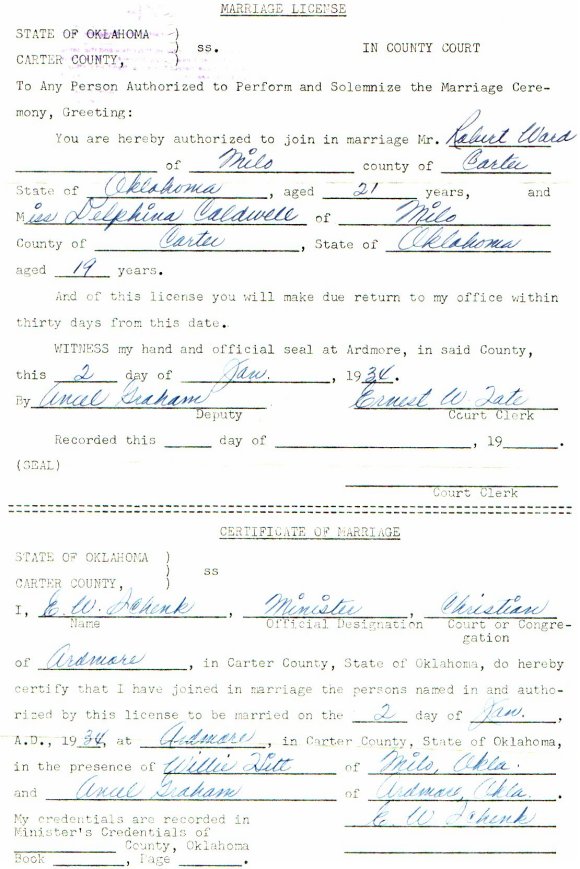 MARRIAGE LICENSE
STATE OF OKLAHOMA )
) ss. IN COUNTY COURT
CARTER COUNTY, )
To Any Person Authorized to Perform and Solemnize the Marriage Cere-
mony, Greeting:
You are hereby authorized to join in marriage Mr. Robert Ward
of Milo county of Carter
State of Oklahoma, aged 21 years, and
Miss Delphina Caldwell of Milo
County of Carter, State of Oklahoma
aged 19 years.
And of this license you will make due return to my office within
thirty days from this date.
WITNESS my hand and official seal at Ardmore, in said County,
this 2 day of Jan., 1934.
By Ancel Graham Ernest W Tate
Deputy Court Clerk
Recorded this ______ day of ____________________, 19______.
(SEAL)
Court Clerk
CERTIFICATE OF MARRIAGE
STATE OF OKLAHOMA )
) ss
CARTER COUNTY, )
I, E. W. Schenk, Minister, Christian
Name Official Designation Court or Congre-
gation
of Ardmore, in Carter County, State of Oklahoma, do hereby
certify that I have joined in marriage the persons named in and autho-
rized by this license to be married on the 2 day of Jan.,
A.D., 1934, at Ardmore, in Carter County, State of Oklahoma,
in the presence of Willie of Milo, Okla.
and Ancel Graham of Ardmore, Okla.
E W Schenk
My credentials are recorded in
Minister's Credentials of
__________ County, Oklahoma
Book __________, Page ________.